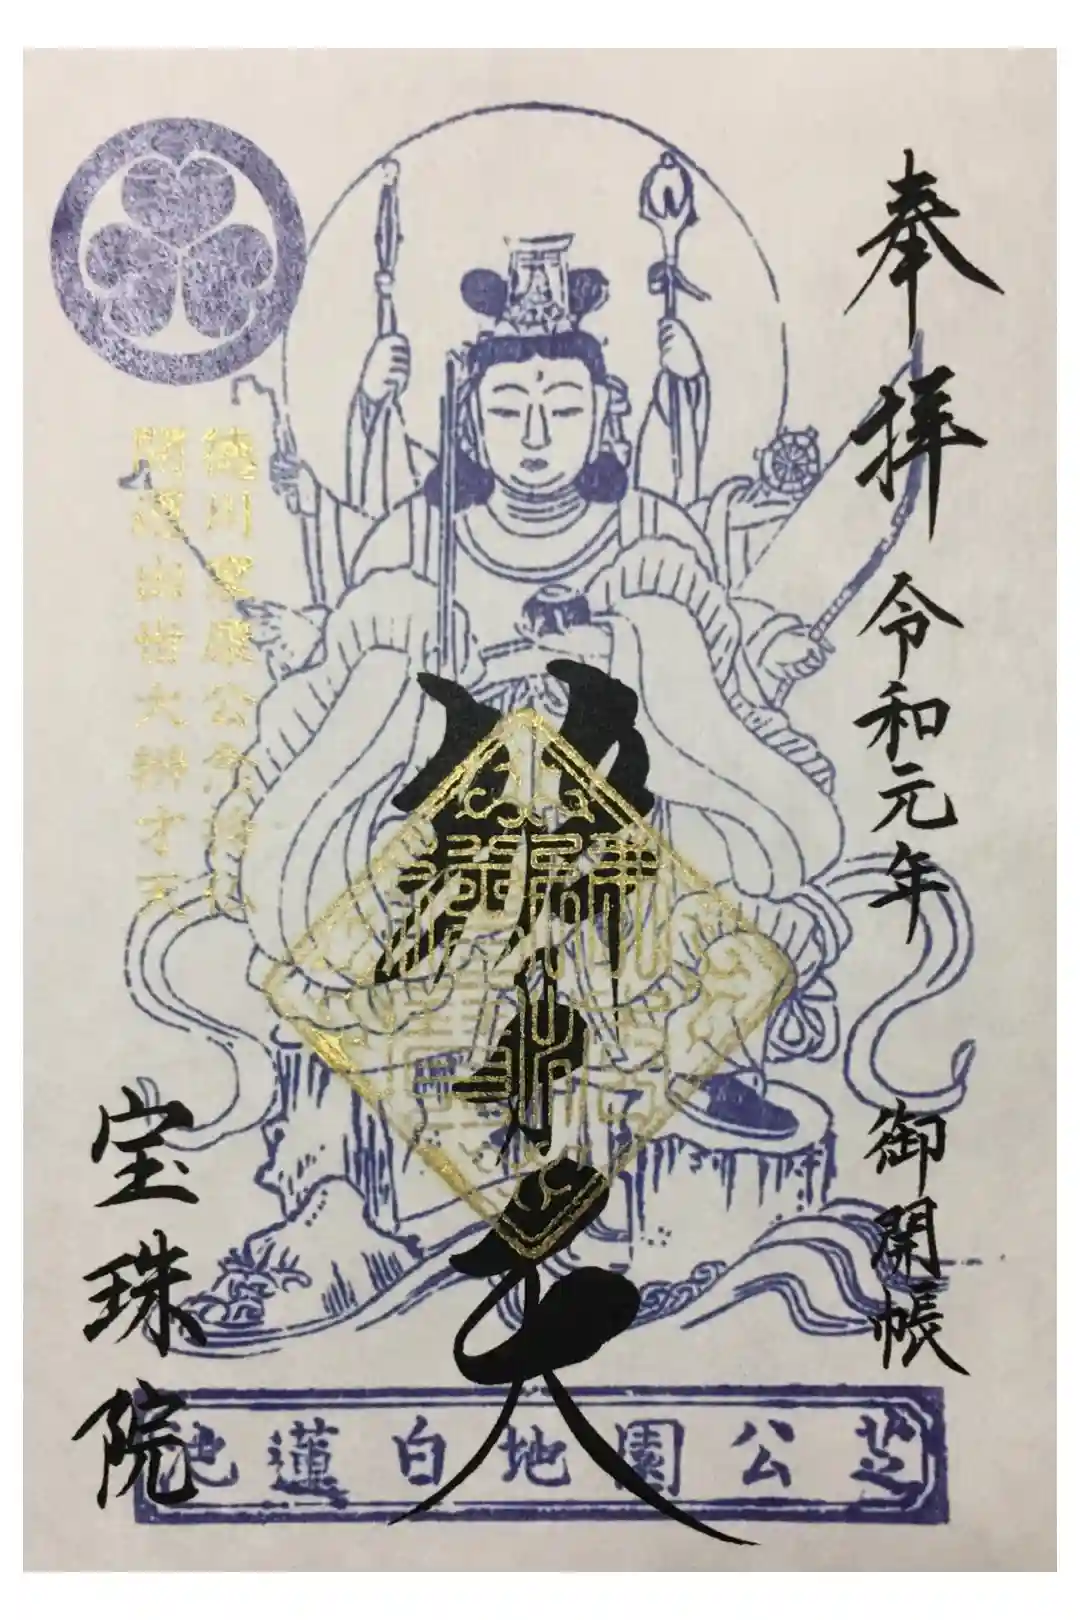 奉拝 令和元年 御開帳
徳川家康公念持仏
開運出世大辨才天
宝珠院
芝公園地白蓮池